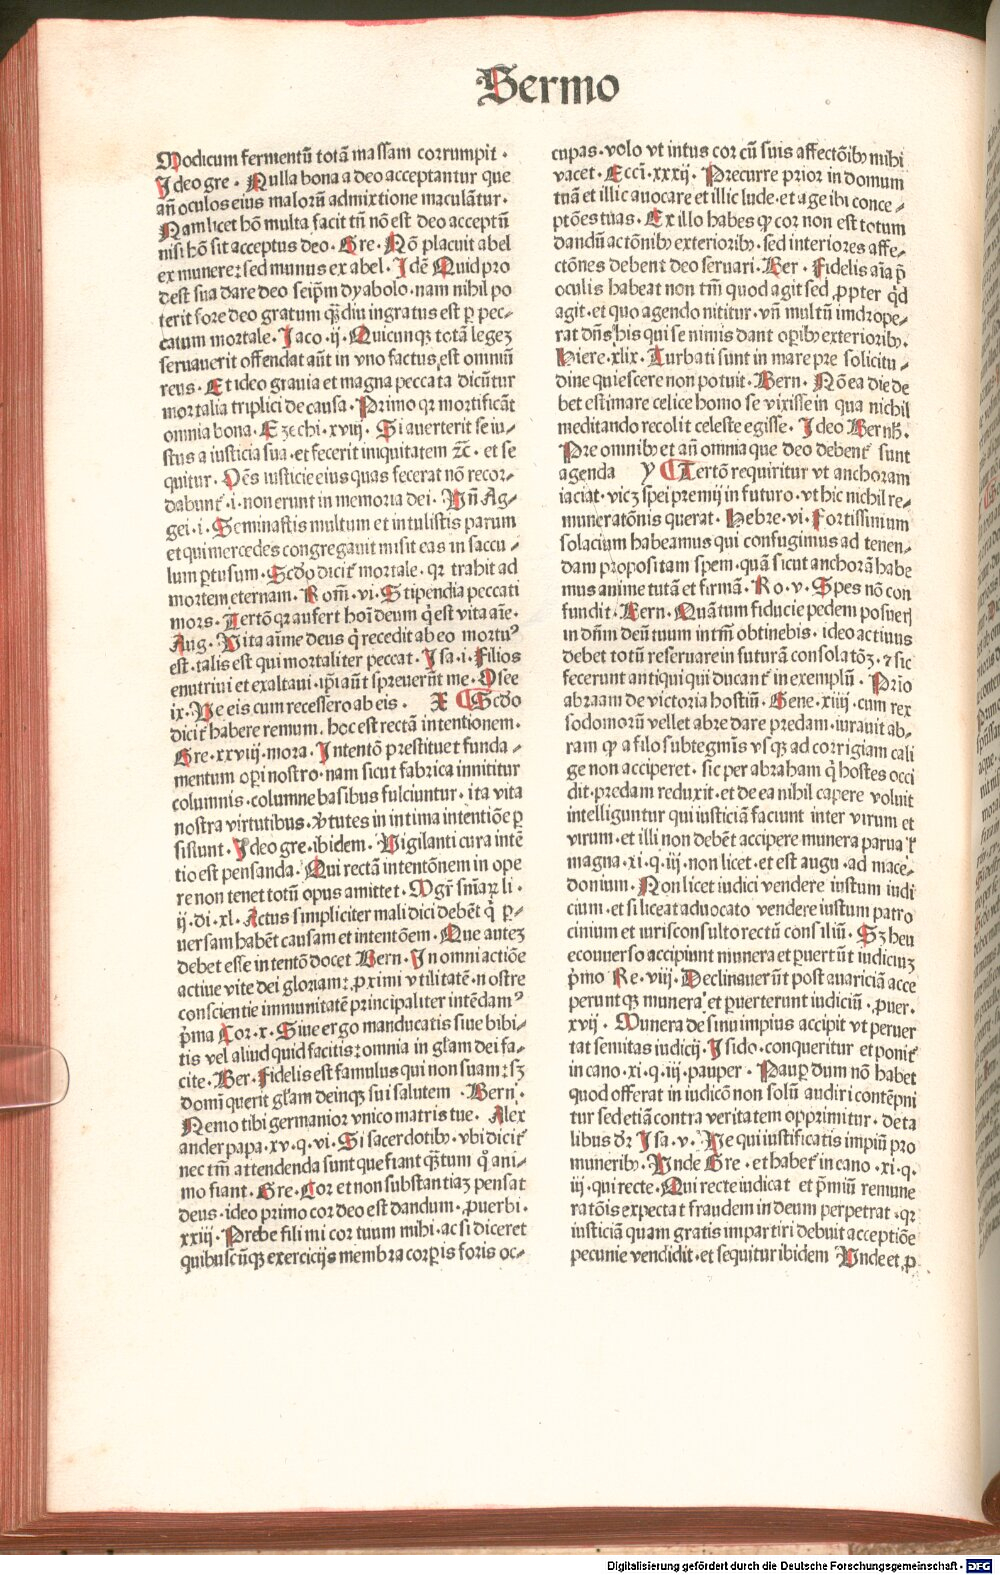 Sermo
Modicum fermentū totā massam corrumpit.
Ideo gre. Nulla bona a deo acceptantur que
añ oculos eius malorū admixtione maculātur.
Nam licet hō multa facit tñ nō est deo acceptū
nisi hō sit acceptus deo. Gre. Nō placuit abel
ex munereː sed munus ex abel. Idē Quid pro
dest sua dare deo seipm̄ dyabolo. nam nihil po
terit fore deo gratum qȝdiu ingratus est ꝑ pec-
catum mortale. Jaco. ij. Quicunqȝ totā legeȝ
seruauerit offendat aūt in vno factus est omniū
reus. Et ideo grauia et magna peccata dicūtur
mortalia triplici de causa. Primo qꝛ mortificāt
omnia bona. Ezechi. xviij. Si auerterit se iu-
stus a iusticia sua. et fecerit iniquitatem ⁊c̄. et se
quitur. Oēs iusticie eius quas fecerat nō recor-
dabunt̄. i. non erunt in memoria dei. Vñ Ag-
gei. i. Seminastis multum et intulistis parum
et qui mercedes congregauit misit eas in saccu-
lum ꝑtusum. Scd̄o dicit̄ mortale. qꝛ trahit ad
mortem eternam. Rom̄. vi. Stipendia peccati
mors. Tertō qꝛ aufert hoī deum q̇ est vita aīe.
Aug. Vita aīme deus q̇ recedit ab eo mortuꝰ
est. talis est qui mortaliter peccat. Isa. i. Filios
enutriui et exaltaui. ip̄i aūt spreuerūt me. Osee
ix. Ve eis cum recessero ab eis. X ¶ Scd̄o
dicit̄ habere remum. hoc est rectā intentionem.
Gre. xxviij. mora. Intentō prestituet funda-
mentum oꝑi nostro. nam sicut fabrica innititur
columnis. columne basibus fulciuntur. ita vita
nostra virtutibus. v̄tutes in intima intentiōe ꝑ
sistunt. Ideo gre. ibidem. Vigilanti cura intē
tio est pensanda. Qui rectā intentōnem in ope
re non tenet totū opus amittet. Mgr̄ sn̄iaꝝ li.
ij. di. xl. Actus simpliciter mali dici debēt q̇ ꝑ-
uersam habēt causam et intentōem. Que auteȝ
debet esse intentō docet Bern. In omni actiōe
actiue vite dei gloriamː ꝓximi vtilitatē. nostre
conscientie immunitatē principaliter intēdamꝰ
p̄ma Cor. x. Siue ergo manducatis siue bibi-
tis vel aliud quid facitisː omnia in gl̄am dei fa-
cite. Ber. Fidelis est famulus qui non suamː sȝ
domī querit gl̄am deinqȝ sui salutem. Bern.
Nemo tibi germanior vnico matris tue. Alex
ander papa. xv. q. vi. Si sacerdotibȝ. vbi dicit̄
nec tm̄ attendenda sunt que fiant qȝtum q̊ ani-
mo fiant. Gre. Cor et non substantiaȝ pensat
deus. ideo primo cor deo est dandum. ꝓuerbi.
xxiij. Prebe fili mi cor tuum mihi. ac si diceret
quibuscūqȝ exercicijs membra corꝑis foris oc-
cupas. volo vt intus cor cū suis affectōibȝ mihi
vacet. Eccī. xxxij. Precurre prior in domum
tuā et illic auocare et illic lude. et age ibi conce-
ptōes tuas. Ex illo habes ꝙ cor non est totum
dandū actōnibȝ exterioribȝ. sed interiores affe-
ctōnes debent̄ deo seruari. Ber. Fidelis aīa p̄
oculis habeat non tm̄ quod agit sed ꝓpter q̇d
agit. et quo agendo nititur. vñ multū imdrope-
rat dn̄s his qui se nimis dant oꝑibȝ exterioribȝ.
Hiere. xlix. Turbati sunt in mare pre solicitu-
dine quiescere non potuit. Bern. Nō ea die de
bet estimare celice homo se vixisse in qua nichil
meditando recolit celeste egisse. Ideo Bernh̄.
Pre omnibȝ et añ omnia que deo debent̄ sunt
agenda y ¶ Tertō requiritur vt anchoram
iaciat. vicȝ spei premij in futuro. vt hic nichil re-
muneratōnis querat. Hebre. vi. Fortissimum
solacium habeamus qui confugimus ad tenen-
dam propositam spem. quā sicut anchorā habe
mus anime tutā et firmā. Ro. v. Spes nō con
fundit. Bern. Quātum fiducie pedem posueri
in dn̄m deū tuum intm̄ obtinebis. ideo actiuus
debet totū reseruare in futurā consolatōȝ. ⁊ sic
fecerunt antiqui qui ducant̄ in exemplū. Prīo
abraam de victoria hostiū. Gene. xiiij. cum rex
sodomorū vellet abre dare predam. iurauit ab-
ram ꝙ a filo subtegmīs vsqȝ ad corrigiam cali
ge non acciperet. sic per abraham q̇ hostes occi
dit. predam reduxit. et de ea nihil capere voluit
intelliguntur qui iusticiā faciunt inter virum et
virum. et illi non debēt accipere munera parua ł
magna. xi. q. iij. non licet. et est augu. ad mace-
donium. Non licet iudici vendere iustum iudi
cium. et si liceat aduocato vendere iustum patro
cinium et iurisconsulto rectū consiliū. Sȝ heu
econuerso accipiunt munera et ꝑuertūt iudiciuȝ
p̄mo Re. viij. Declinauerūt post auariciā acce
perunt qȝ munera et ꝑuerterunt iudiciū. ꝓuer.
xvij. Munera de sinu impius accipit vt peruer
tat semitas iudicij. Isido. conqueritur et ponit̄
in cano. xi. q. iij. pauper. Pauꝑ dum nō habet
quod offerat in iudicō non solū audiri contēpni
tur sed etiā contra veritatem opprimitur. de ta
libus dr̄ Isa. v. Ve qui iustificatis impiū pro
muneribȝ. Vnde Gre. et habet̄ in cano. xi. q.
iij. qui recte. Qui recte iudicat et p̄miū remune
ratōis expectat fraudem in deum perpetrat. qꝛ
iusticiā quam gratis impartiri debuit acceptiōe
pecunie vendidit. et sequitur ibidem Vnde et ꝓ
Digitalisierung gefördert durch die Deutsche Forschungsgemeinschaft - DFG